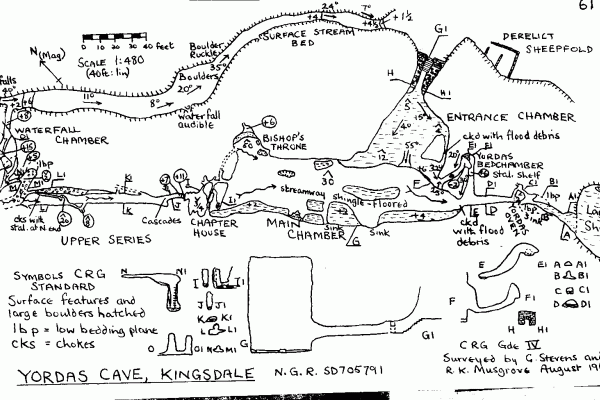 61
24°
7°
+4
+4½
+1½
SURFACE STREAM
BED
G1
DERELICT
SHEEPFOLD
N(Mag)
0 10 20 30 40 feet
SCALE 1:480
(40ft:1in)
Boulder
Ruckle
35°
Boulders
20°
11°
8°
waterfall
audible
H
H1
falls
40°
+6
+8
WATERFALL
CHAMBER
+15
1bp
L1
M1
K1
+6
BISHOP'S
THRONE
60
ENTRANCE CHAMBER
15°
40
55°
12
30
ckd with flood debris
E1
YORDAS
BEDCHAMBER
Stal. Shelf
20°
F
D1
C1
B1
A1
streamway
Shingle-Floored
+11
I1
L
K
J
Cascades
CHAPTER
HOUSE
cks with
stal. at N end
20
UPPER SERIES
MAIN
CHAMBER
+2
Sink
G
Sink
+4
E
D
ckd
with flood
debris
YORDAS
OVEN
1bp
Sink
A
SYMBOLS CRG
STANDARD
Surface features and
large boulders hatched
1bp = low bedding plane
cks = chokes
N
N1
I
I1
J
J1
K
K1
L
L1
O
O1
M
M1
G
G1
E
E1
F
F1
H
H1
A
A1
B
B1
C
C1
D
D1
CRG Gde IV
Surveyed by G. Stevens and
R. K. Musgrove August 19
YORDAS CAVE, KINGSDALE
N.G.R. SD705791